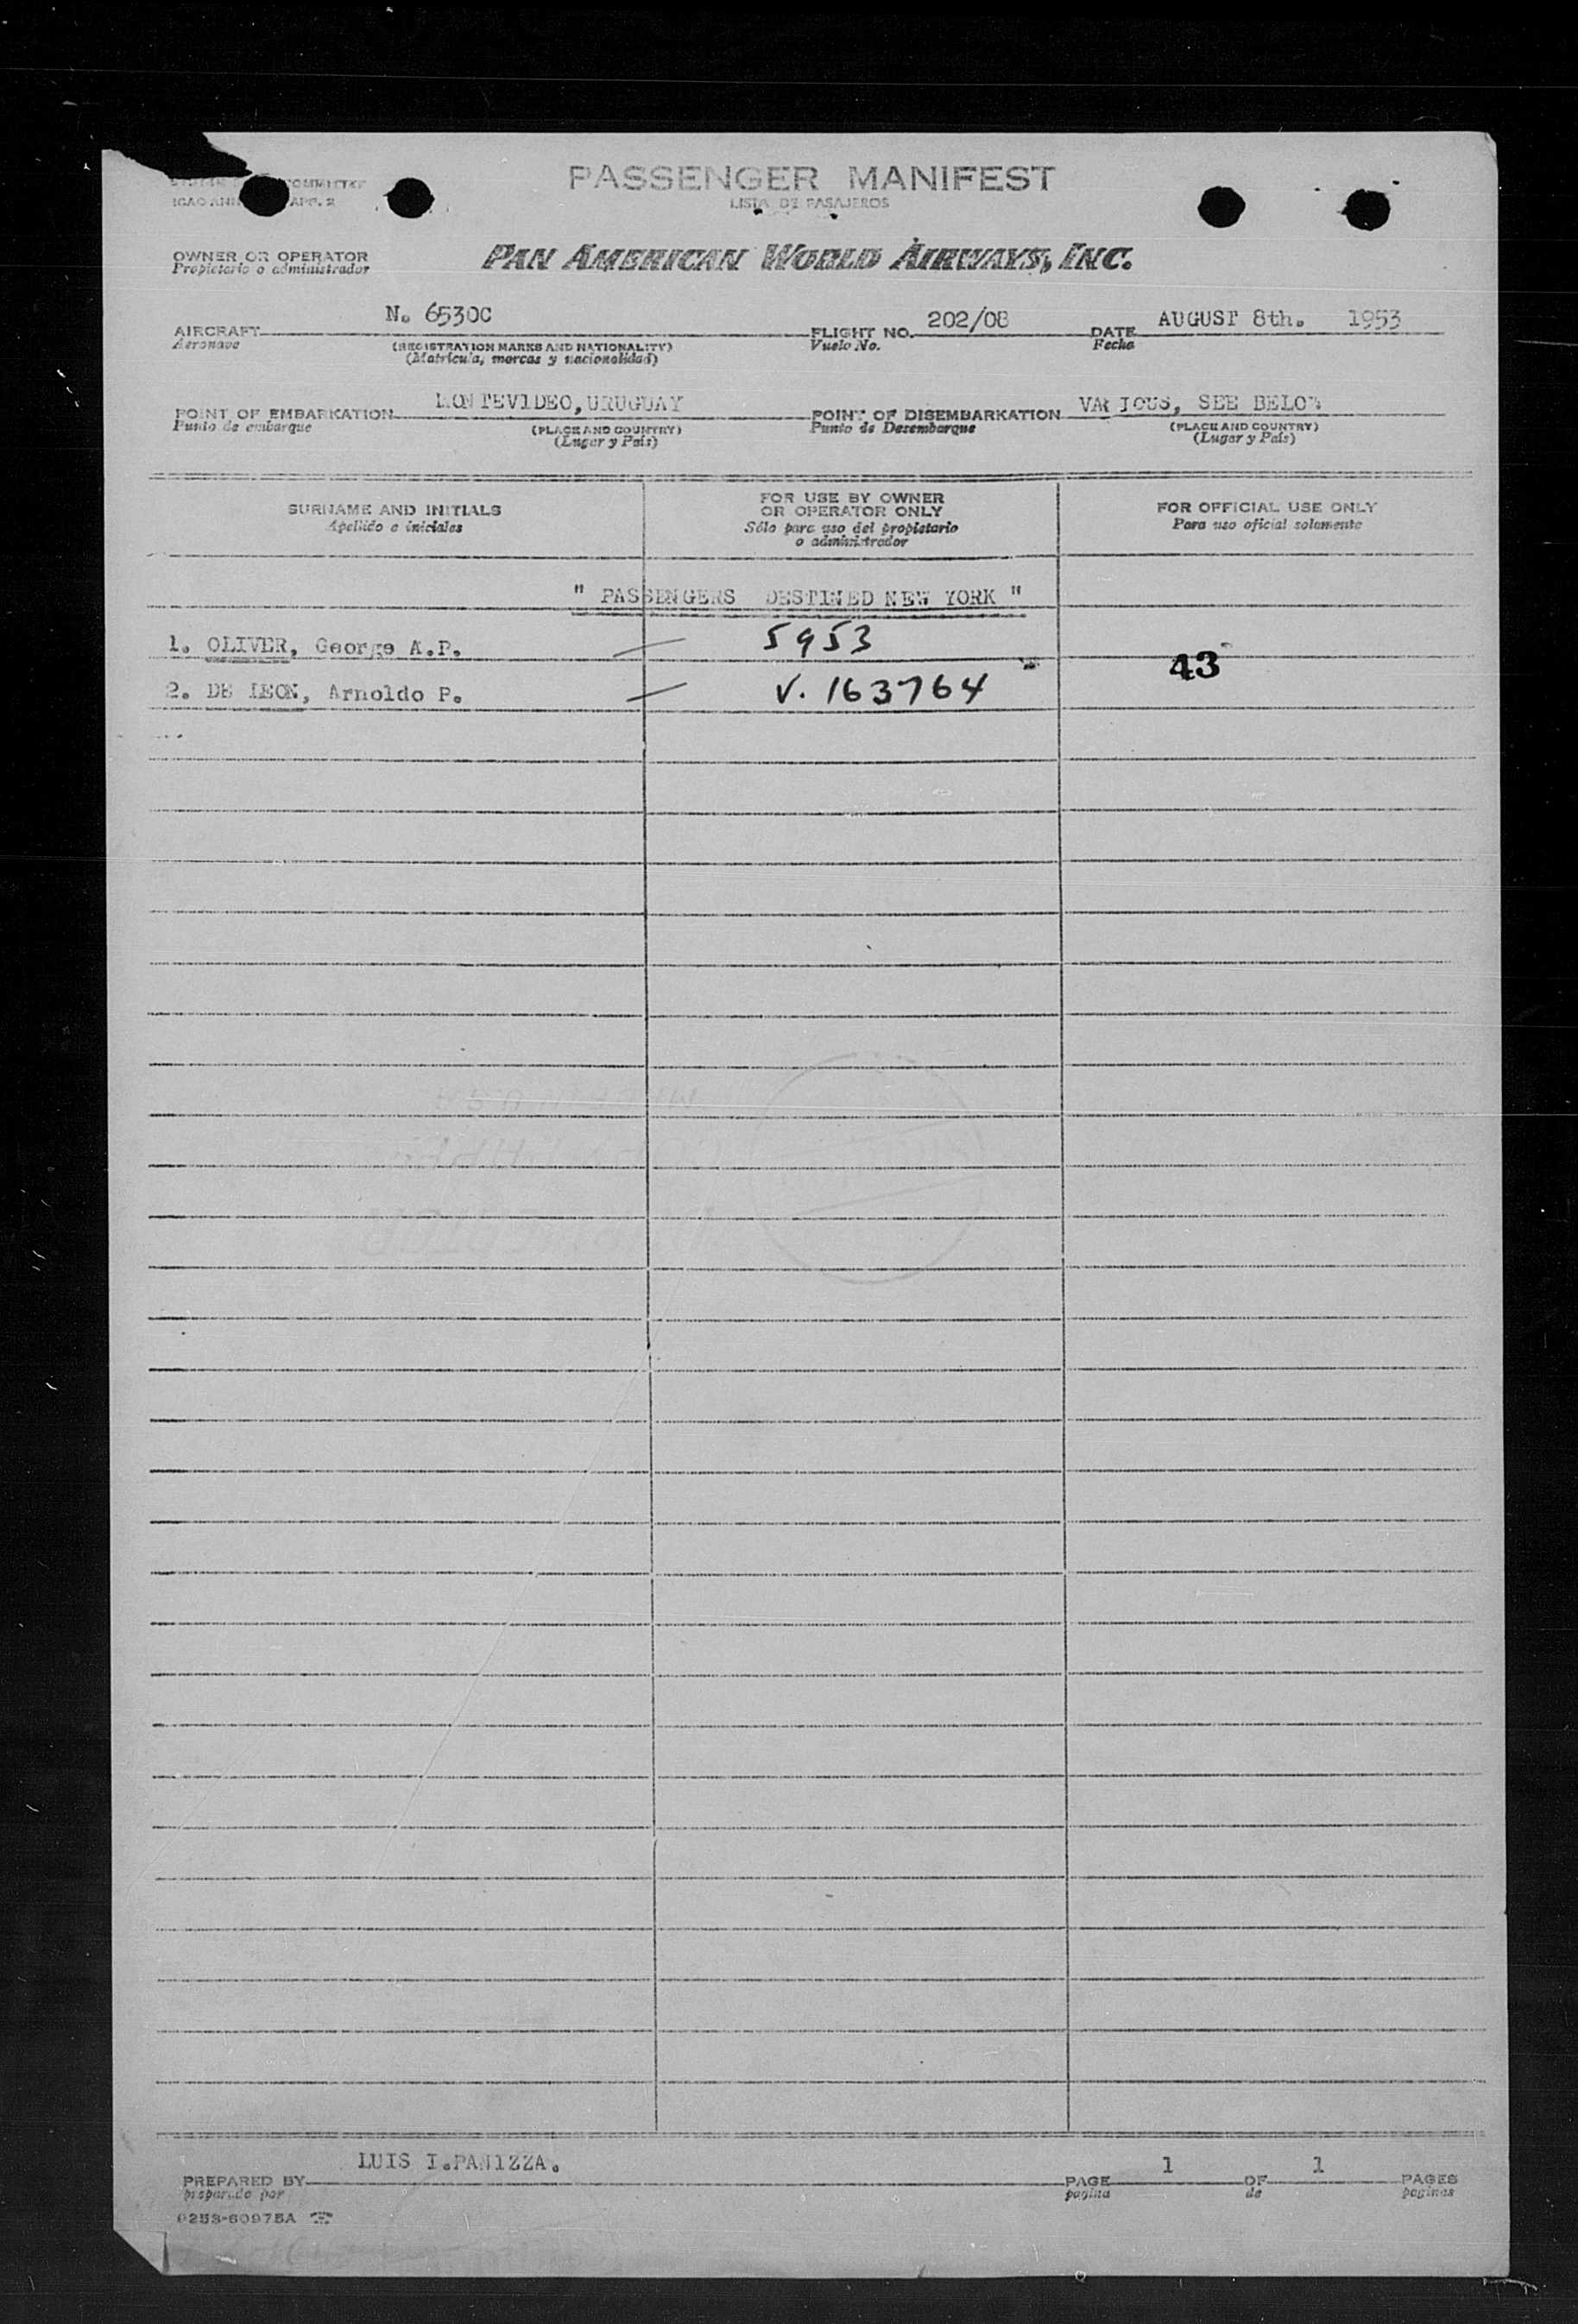 COMMITTEE
PASSENGER MANIFEST
ICAO ANN APP. 2
LISTA DE PASAJEROS
OWNER OR OPERATOR
Propietario o administrador
PAN AMERICAN WORLD AIRWAYS, INC.
AIRCRAFT N. 6530C FLIGHT NO. 202/08 DATE AUGUST 8th. 1953
Aeronave (REGISTRATION MARKS AND NATIONALITY) Vuelo No. Fecha
(Matricula, marcas y nacionalidad)
POINT OF EMBARKATION MONTEVIDEO, URUGUAY POINT OF DISEMBARKATION VARIOUS, SEE BELOW
Punto de embarque (PLACE AND COUNTRY) Punto de Desembarque (PLACE AND COUNTRY)
(Lugar y País) (Lugar y País)
SURNAME AND INITIALS
Apellido e iniciales
FOR USE BY OWNER
OR OPERATOR ONLY
Sólo para uso del propietario
o administrador
FOR OFFICIAL USE ONLY
Para uso oficial solamente
" PASSENGERS DESTINED NEW YORK "
1. OLIVER, George A.P. — 5953
43
2. DE LEON, Arnoldo P. — V. 163764
PREPARED BY LUIS I.PANIZZA. PAGE 1 OF 1 PAGES
preparado por pagina de paginas
0253-60975A